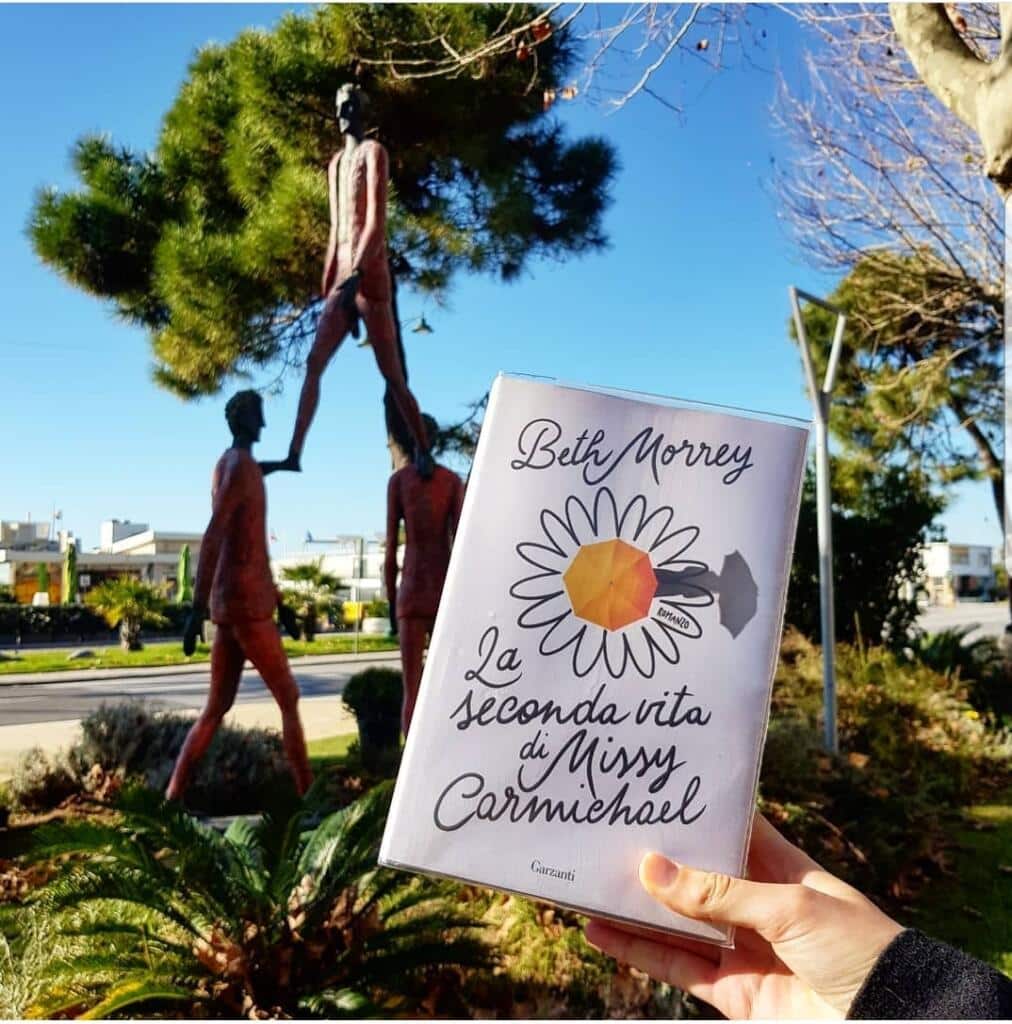 Beth Morrey
ROMANZO
La
seconda vita
di Missy
Carmichael
Garzanti